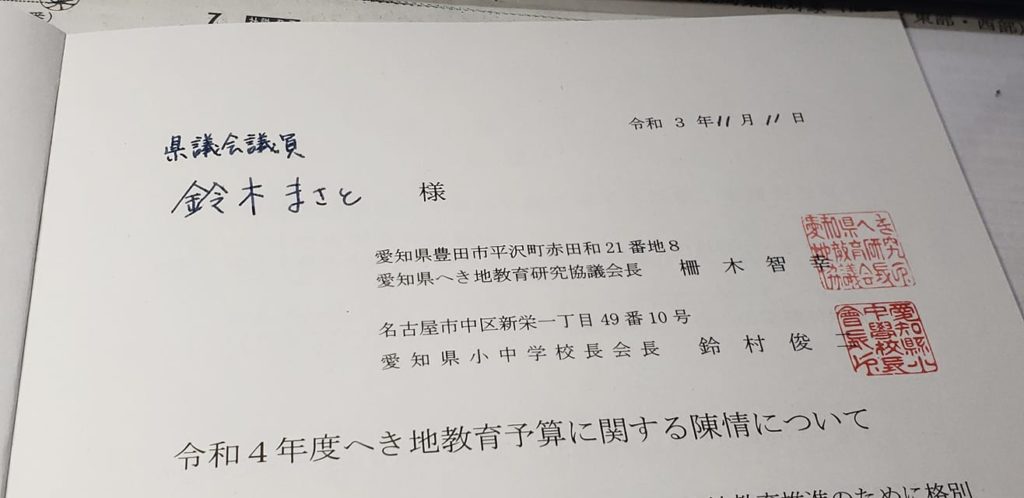 令和 3 年 11 月 11 日
県議会議員
鈴木まさと 様
愛知県豊田市平沢町赤田和21番地8
愛知県へき地教育研究協議会長 柵木智幸
愛知県へき
地教育研究
協議会長印
名古屋市中区新栄一丁目49番10号
愛知県小中学校長会長 鈴村俊二
愛知縣小
中學校長
會長印
令和４年度へき地教育予算に関する陳情について
教育推進のために格別